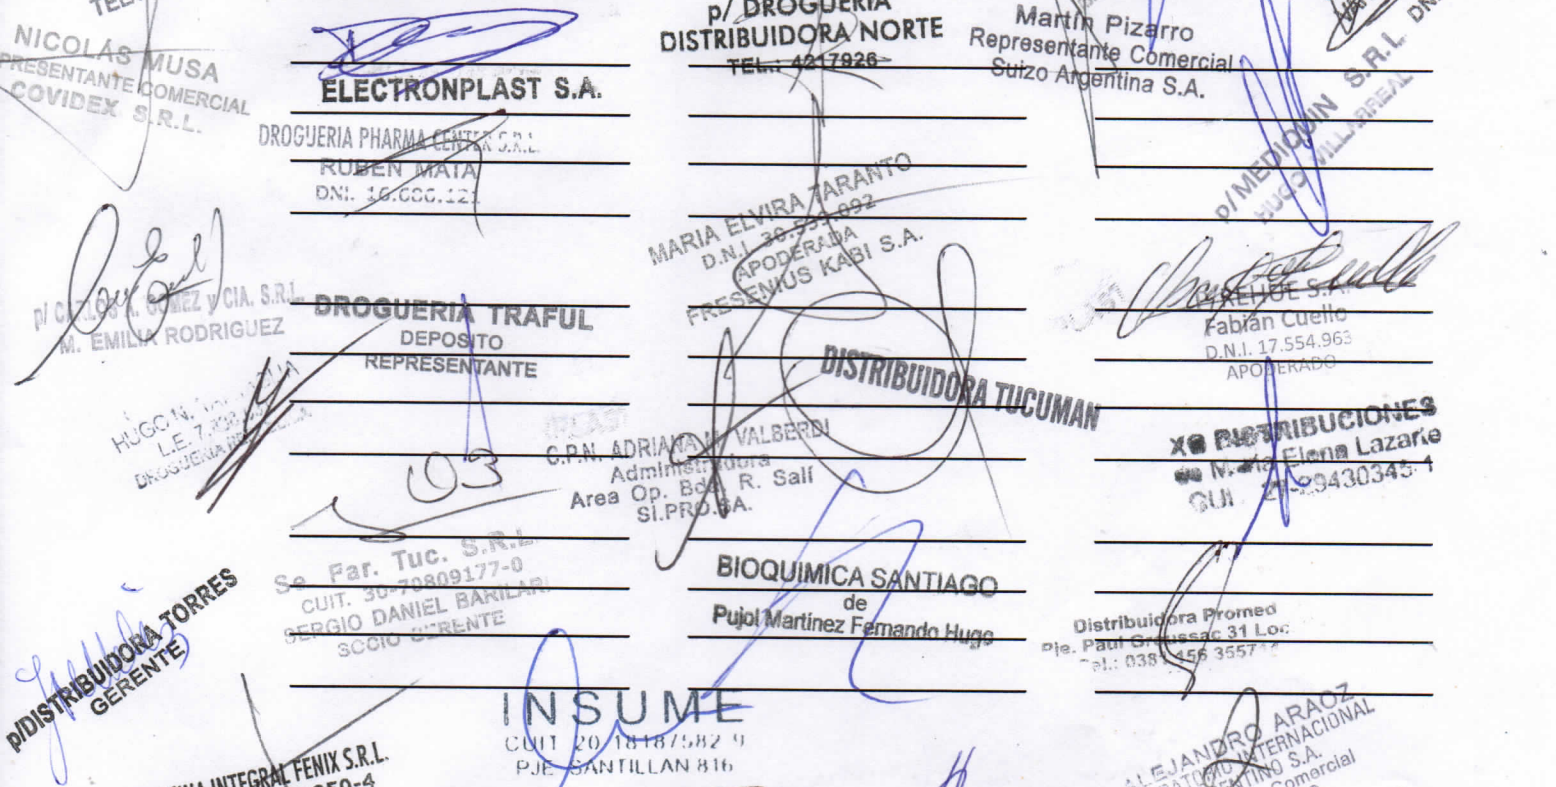 NICOLÁS MUSA
PRESENTANTE COMERCIAL
COVIDEX S.R.L.
ELECTRONPLAST S.A.
DROGUERIA PHARMA CENTER S.R.L.
RUBEN MATA
DNI.
p/ DROGUERIA
DISTRIBUIDORA NORTE
TEL.: 4217926
Martín Pizarro
Representante Comercial
Suizo Argentina S.A.
p/ MEDIQUIN S.R.L
HUGO VILLARREAL
MARIA ELVIRA TARANTO
D.N.I.
APODERADA
FRESENIUS KABI S.A.
p/ CARLOS A. GOMEZ y CIA. S.R.L.
M. EMILIA RODRIGUEZ
DROGUERIA TRAFUL
DEPOSITO
REPRESENTANTE
HUGO N.
L.E.
DISTRIBUIDORA TUCUMAN
S.A.
Fabián Cuello
D.N.I. 17.554.963
APODERADO
C.P.N. ADRIANA VALBERDI
Administradora
Area Op. Bda. R. Salí
SI.PRO.SA.
03
DISTRIBUCIONES
de María Elena Lazarte
Se. Far. Tuc. S.R.L.
CUIT. 30-70809177-0
SERGIO DANIEL BARILARI
SOCIO GERENTE
BIOQUIMICA SANTIAGO
de
Pujol Martinez Fernando Hugo
Distribuidora Promed
Pje. Paul Groussac 31 Loc
p/DISTRIBUIDORA TORRES
GERENTE
INSUME
CUIT 20 18187582 9
PJE. SANTILLAN 816
INTEGRAL FENIX S.R.L.
ALEJANDRO ARAOZ
INTERNACIONAL
S.A.
Comercial